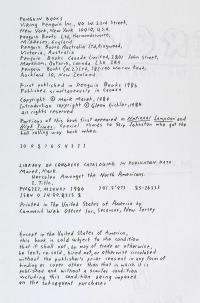 PENGUIN BOOKS
Viking Penguin Inc., 40 West 23rd Street,
New York, New York 10010, U.S.A.
Penguin Books Ltd, Harmondsworth,
Middlesex, England
Penguin Books Australia Ltd, Ringwood,
Victoria, Australia
Penguin Books Canada Limited, 2801 John Street,
Markham, Ontario, Canada L3R 1B4
Penguin Books (N.Z.) Ltd, 182-190 Wairau Road,
Auckland 10, New Zealand
First published in Penguin Books 1986
Published simultaneously in Canada
Copyright © Mark Marek, 1986
Introduction copyright © 1986
All rights reserved
Portions of this book first appeared in National Lampoon and
High Times. Special thanks to Skip Johnston who got the
ball rolling way back when.
10 9 8 7 6 5 4 3 2 1
LIBRARY OF CONGRESS CATALOGING IN PUBLICATION DATA
Marek, Mark.
Hercules Amongst the North Americans.
I. Title.
1986
ISBN 0 14 00
Printed in The United States of America by
Command Web Offset Inc., Secaucus, New Jersey
Except in the United States of America,
this book is sold subject to the condition
that it shall not, by way of trade or otherwise,
be lent, re-sold, hired out, or otherwise circulated
without the publisher's prior consent in any form of
binding or cover other than that in which it is
published and without a similar condition
including this condition being imposed
on the subsequent purchaser